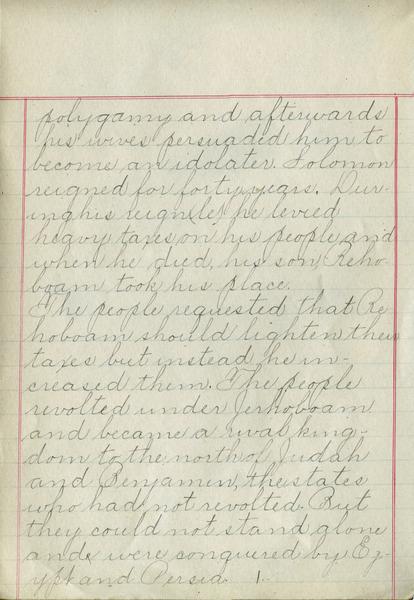 polygamy and afterwards
his wives persuaded him to
become an idolater. Solomon
reigned for forty years. Dur-
ing his reign he levied
heavy taxes on his people and
when he died, his son, Reho-
boam took his place.
The people requested that Re
hoboam should lighten their
taxes but instead he in-
creased them. The people
revolted under Jerhoboam
and became a rival king-
dom to the north of Judah
and Benjamin, the states
who had not revolted. But
they could not stand alone
and were conquered by Eg-
ypt and Persia. 1.